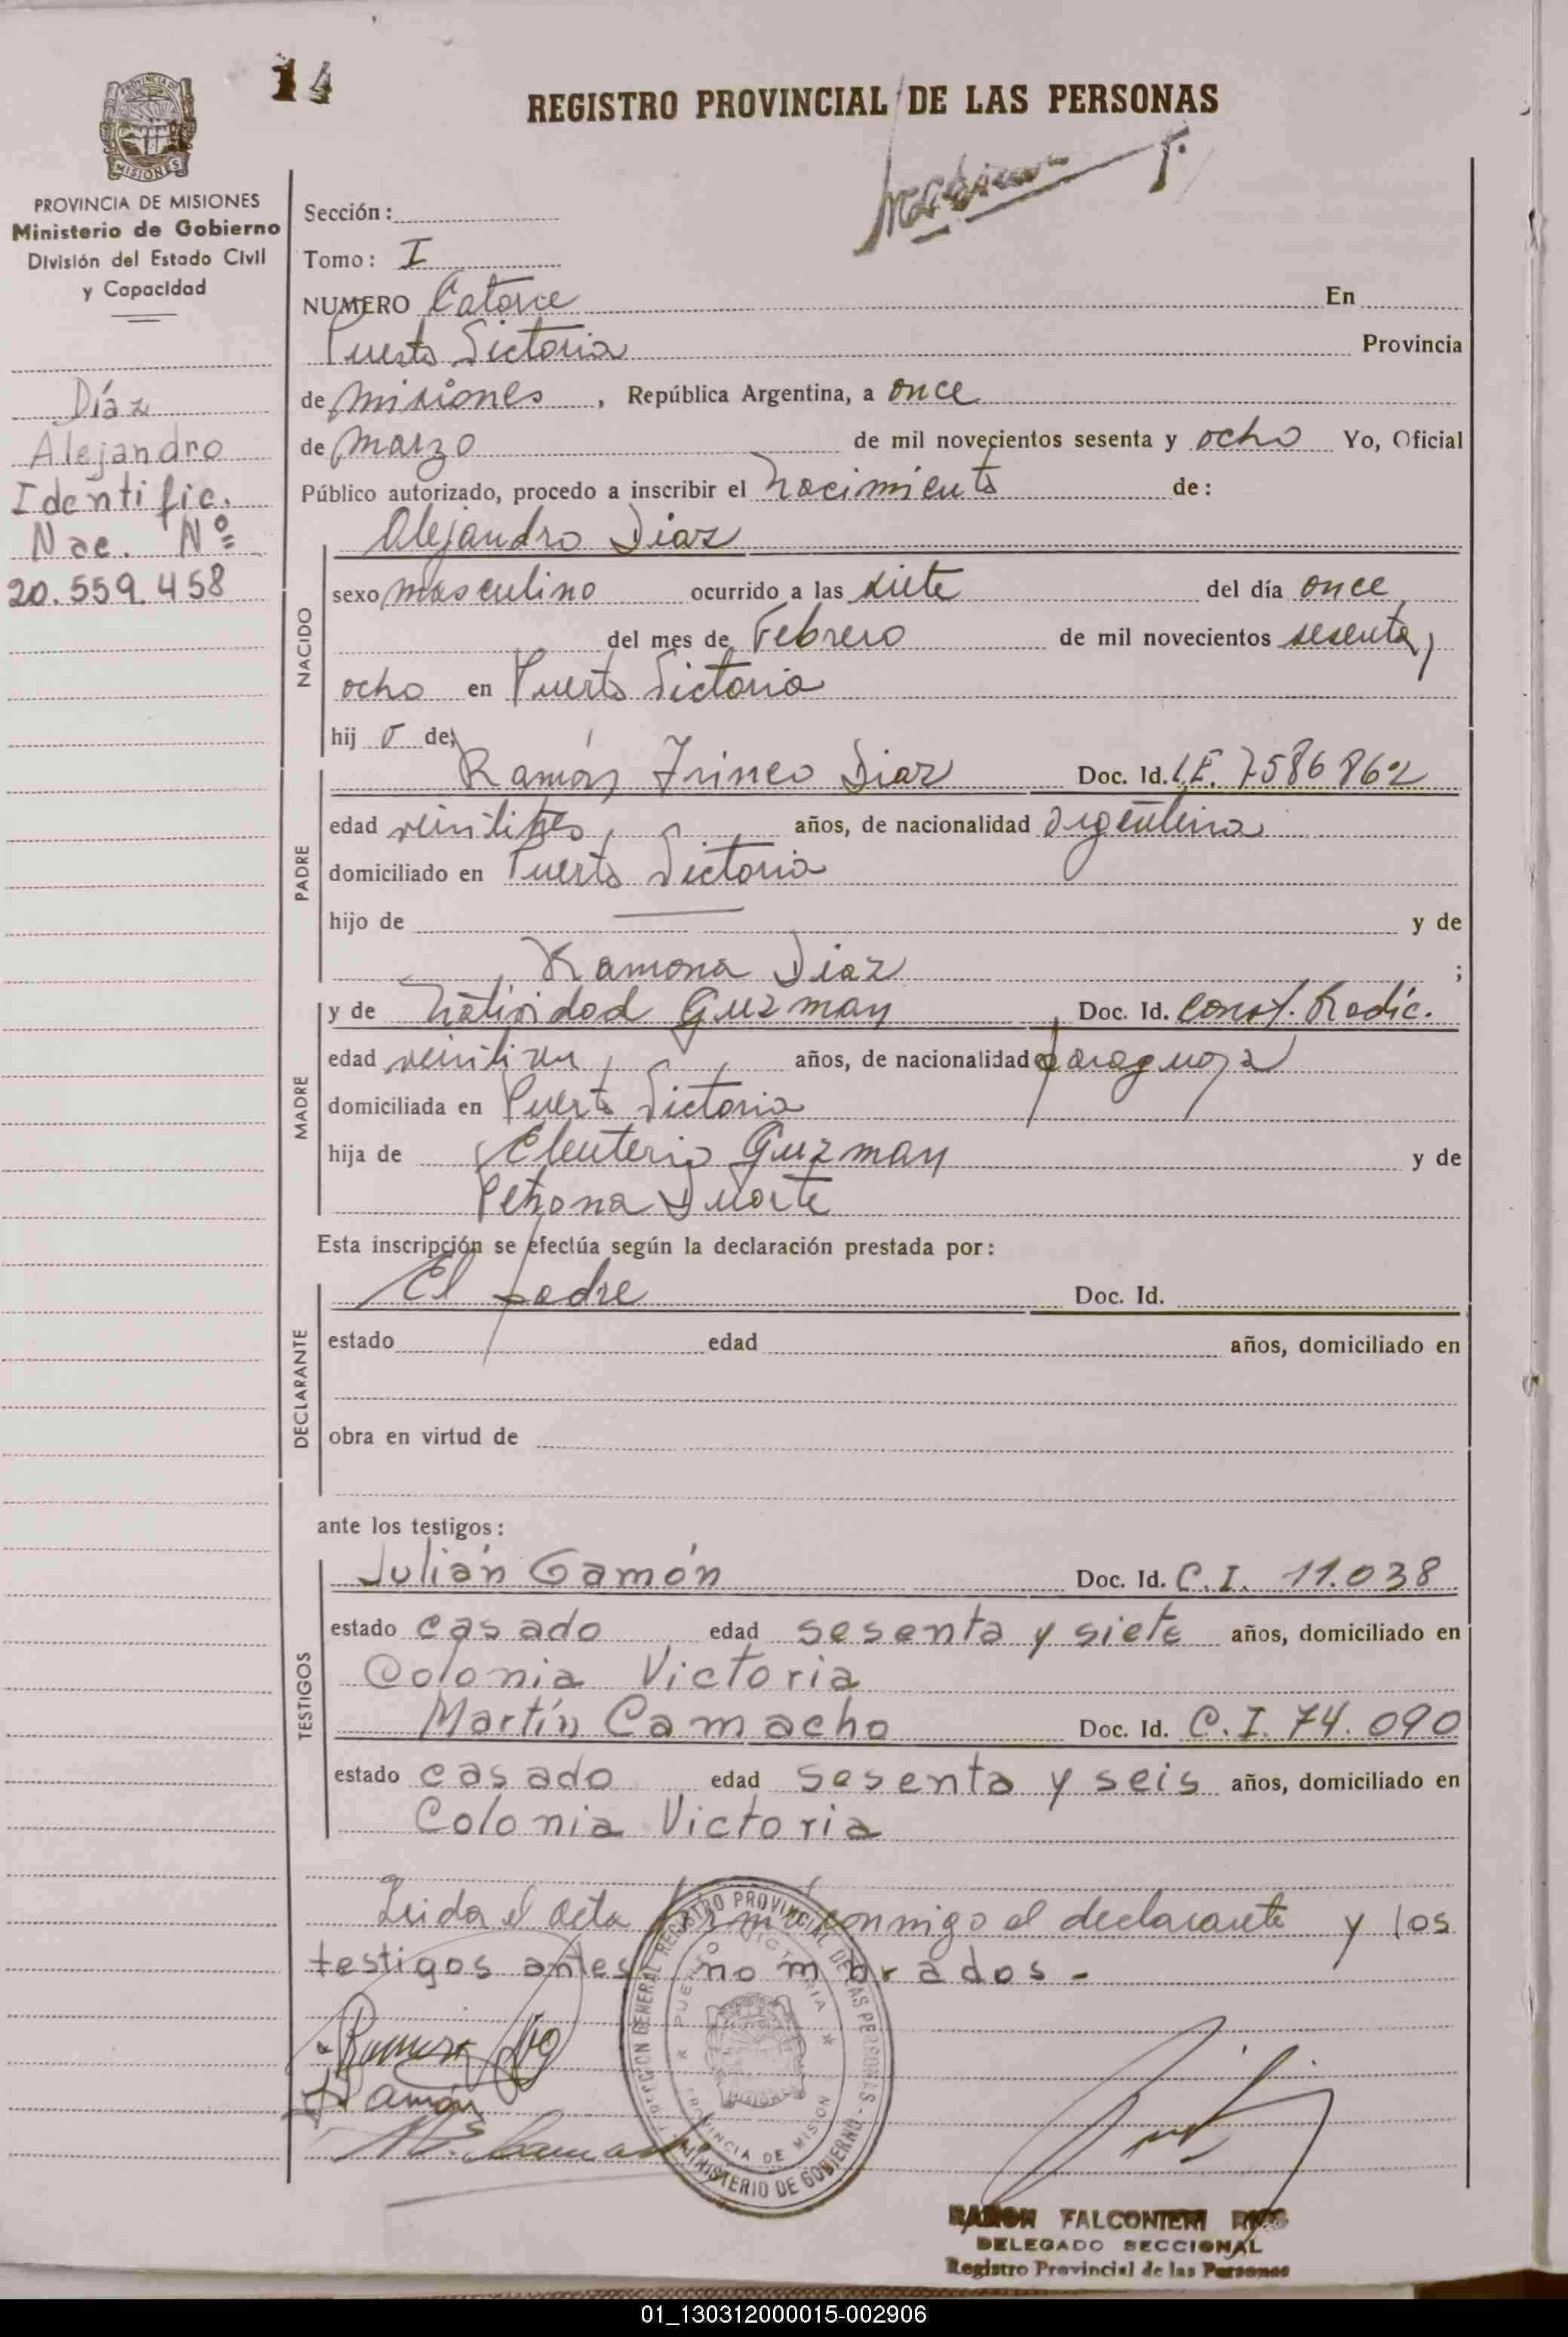 14
REGISTRO PROVINCIAL DE LAS PERSONAS
PROVINCIA DE
MISIONES
PROVINCIA DE MISIONES
Ministerio de Gobierno
División del Estado Civil
y Capacidad
Díaz
Alejandro
Identific.
Nac. Nº
20.559.458
Sección:
Tomo: I
NUMERO Catorce En
Puerto Victoria Provincia
de misiones, República Argentina, a once
de marzo de mil novecientos sesenta y ocho Yo, Oficial
Público autorizado, procedo a inscribir el nacimiento de:
NACIDO
Alejandro Diaz
sexo masculino ocurrido a las siete del día once
del mes de Febrero de mil novecientos sesenta y
ocho en Puerto Victoria
hijo de:
PADRE
Ramón Irineo Diaz Doc. Id. L.E. 7586862
edad veintitres años, de nacionalidad argentina
domiciliado en Puerto Victoria
hijo de y de
Ramona Diaz ;
MADRE
y de Natividad Guzman Doc. Id. Const. Radic.
edad veintiun años, de nacionalidad paraguaya
domiciliada en Puerto Victoria
hija de Eleuterio Guzman y de
Petrona Duarte
Esta inscripción se efectúa según la declaración prestada por:
DECLARANTE
El padre Doc. Id.
estado edad años, domiciliado en
obra en virtud de
ante los testigos:
TESTIGOS
Julián Gamón Doc. Id. C.I. 11.038
estado casado edad sesenta y siete años, domiciliado en
Colonia Victoria
Martín Camacho Doc. Id. C.I. 74.090
estado casado edad sesenta y seis años, domiciliado en
Colonia Victoria
Leida el acta firma conmigo el declarante y los
testigos antes nombrados.-
DIRECCION GENERAL REGISTRO PROVINCIAL DE LAS PERSONAS - MINISTERIO DE GOBIERNO
PUERTO VICTORIA
PROVINCIA DE MISIONES
Gamón
RAMON FALCONIERI RIOS
DELEGADO SECCIONAL
Registro Provincial de las Personas
01_130312000015-002906